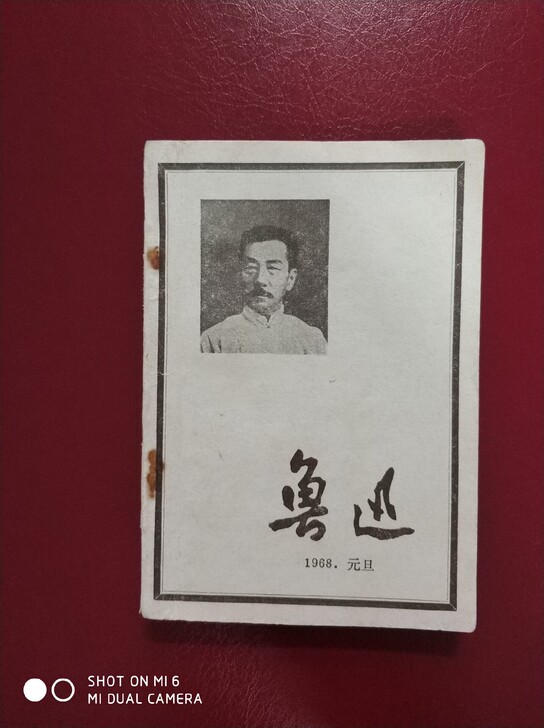 鲁迅
1968. 元旦
SHOT ON MI 6
MI DUAL CAMERA